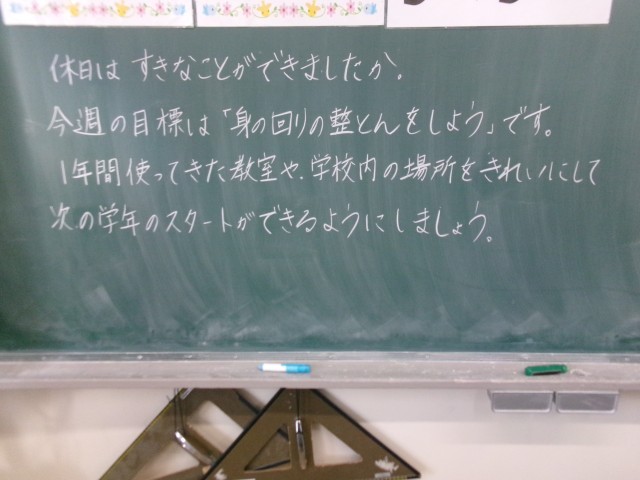 休日は すきなことができましたか。
今週の目標は「身の回りの整とんをしよう」です。
1年間使ってきた教室や、学校内の場所をきれいにして
次の学年のスタートができるようにしましょう。